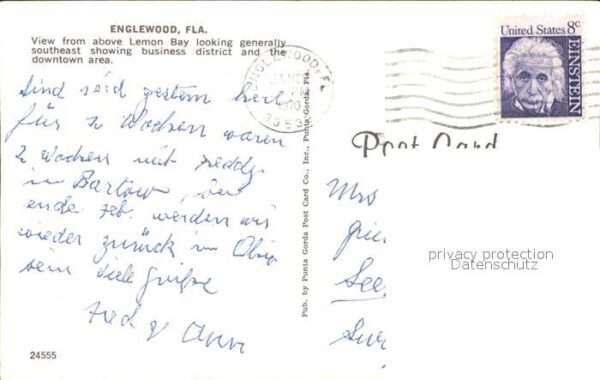 ENGLEWOOD, FLA.
View from above Lemon Bay looking generally
southeast showing business district and the
downtown area.
Sind seid gestern hier
für 2 Wochen waren
2 Wochen mit Freddy
in Bartow,
ende Feb. werden wir
wieder zurück in Ohio
sein viele Grüße
Fred & Anna
24555
Pub. by Punta Gorda Post Card Co., Inc., Punta Gorda, Fla.
ENGLEWOOD, FL
JAN
United States 8c
EINSTEIN
Post Card
Mrs
privacy protection
Datenschutz
See